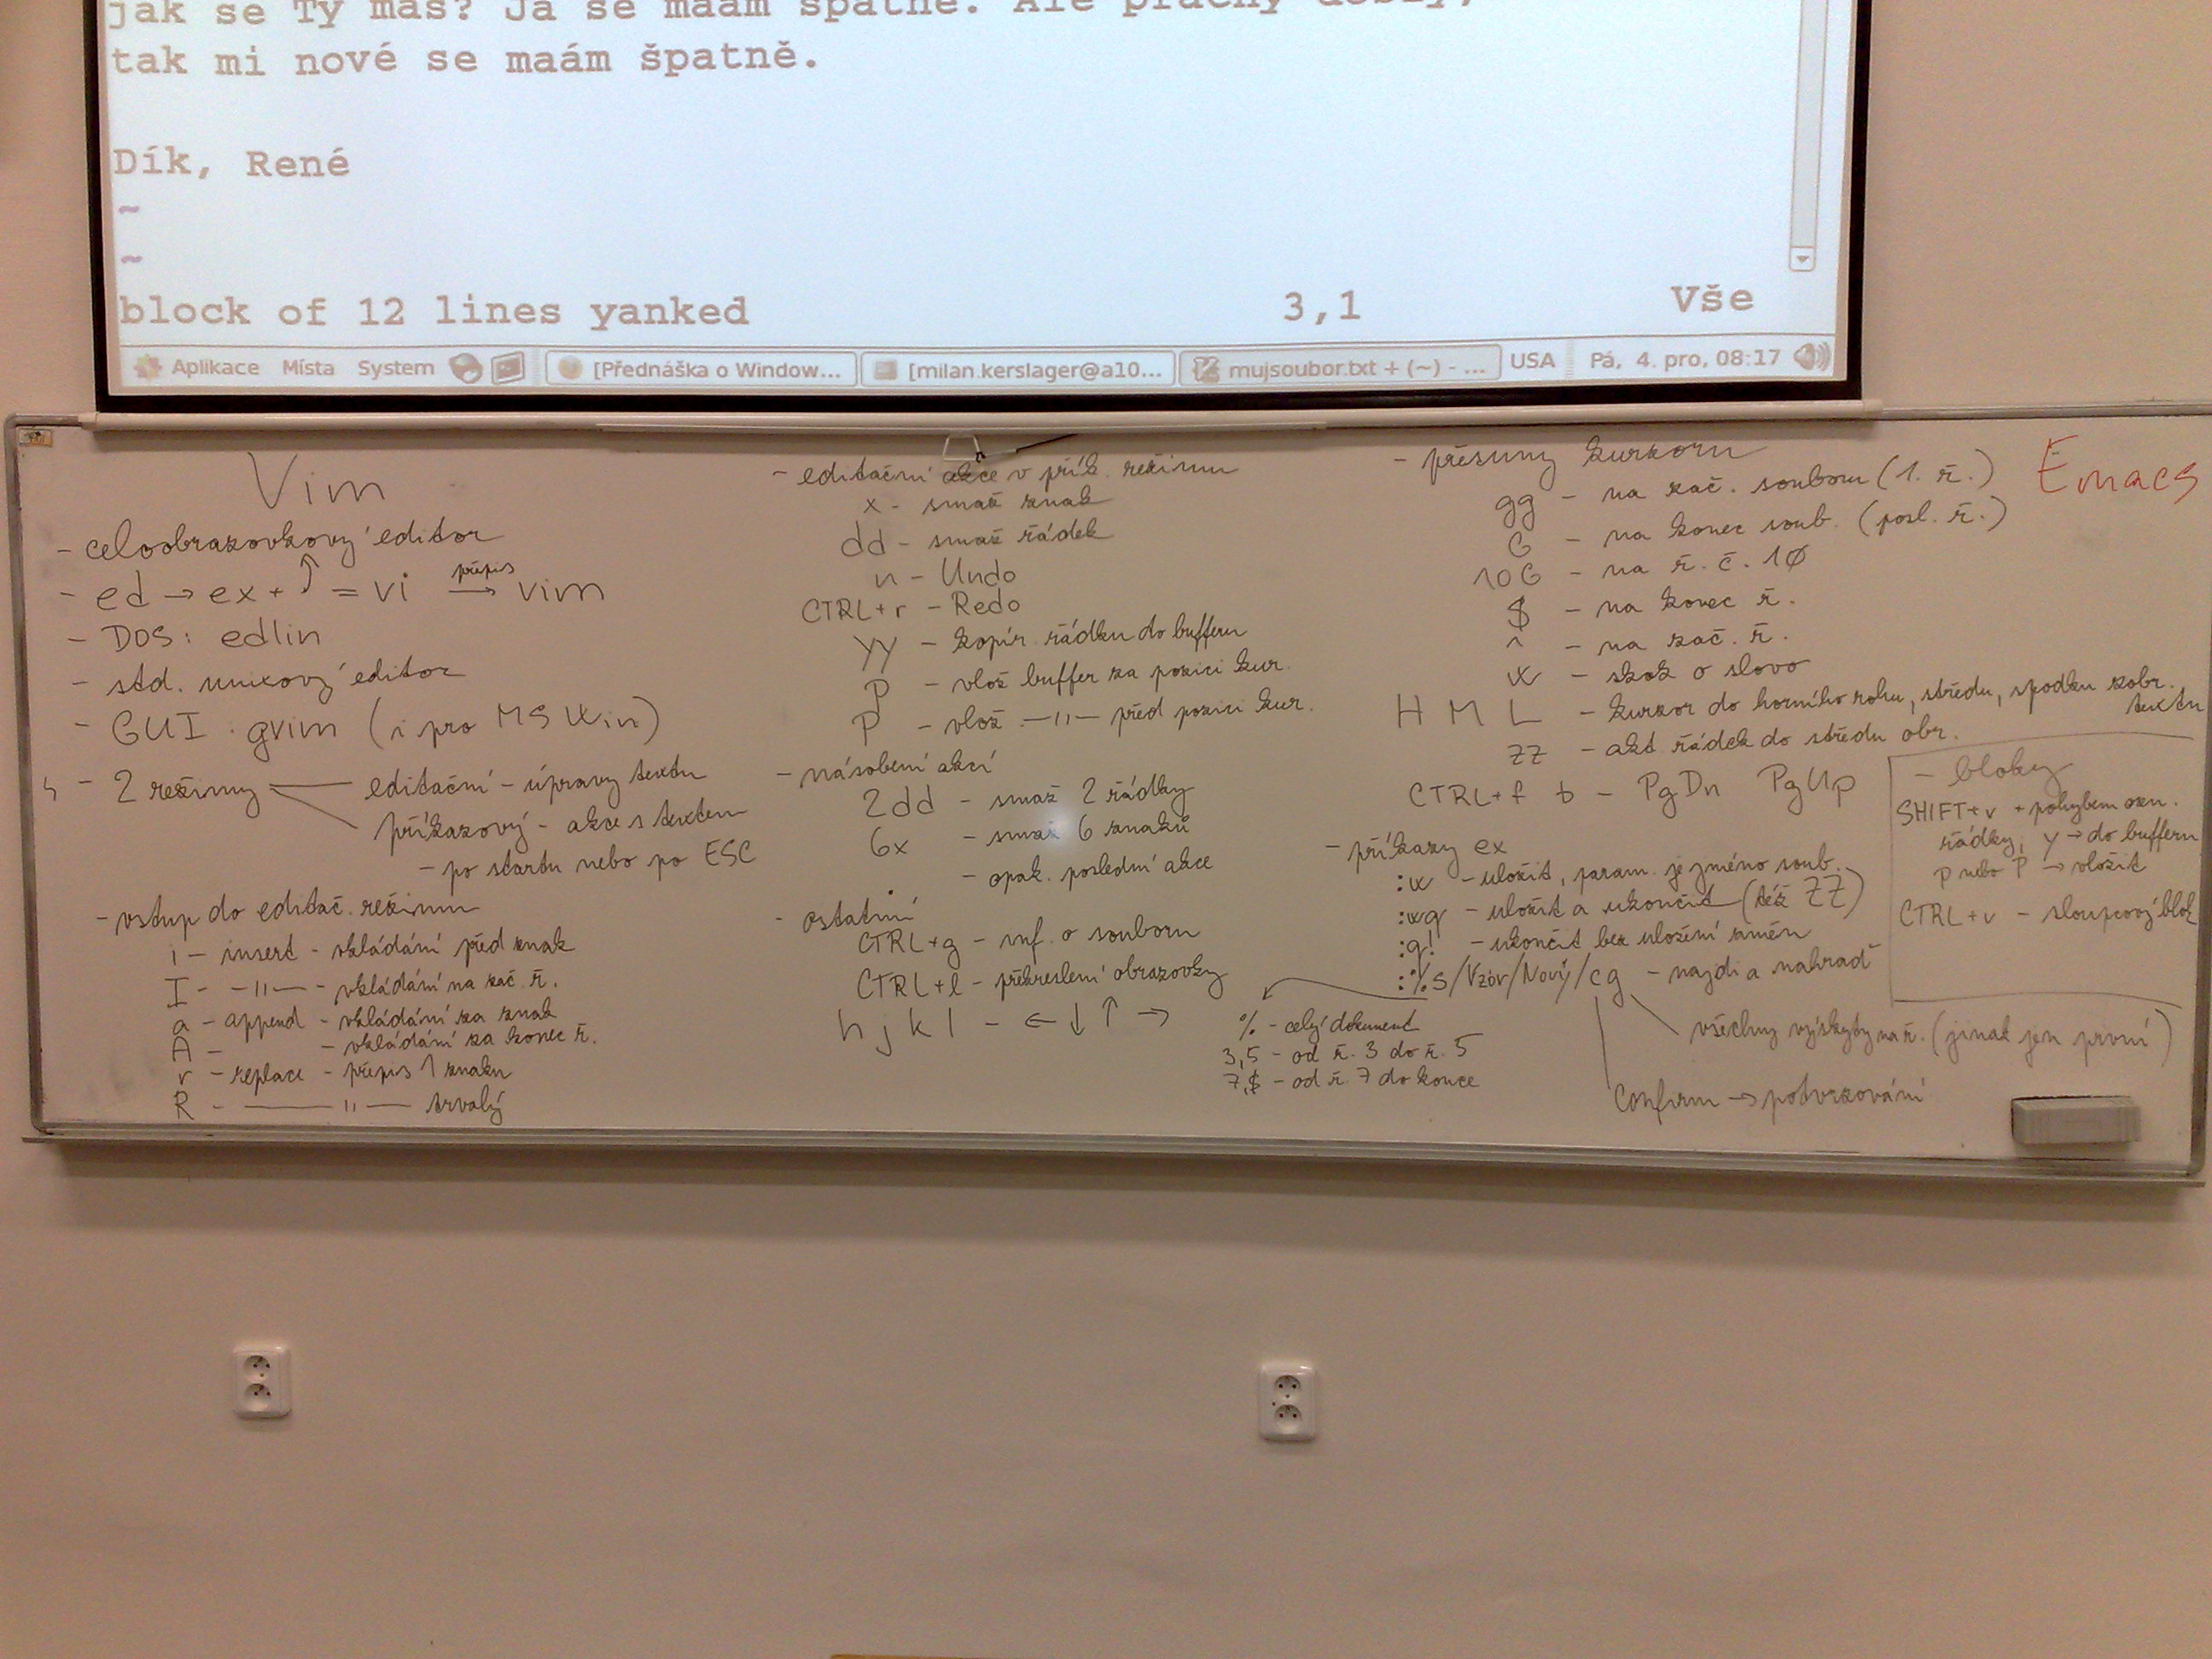 jak se Ty máš? Já se maám špatně. Ale prachy dobrý,
tak mi nové se maám špatně.
Dík, René
~
~
block of 12 lines yanked 3,1 Vše
Aplikace Místa System [Přednáška o Window... [milan.kerslager@a10... mujsoubor.txt + (~) - ... USA Pá, 4. pro, 08:17
Vim
- celoobrazovkový editor
- ed → ex + ↑ = vi přepis → vim
- DOS: edlin
- std. unixový editor
- GUI: gvim (i pro MS Win)
- 2 režimy editační - úpravy textu
příkazový - akce s textem
- po startu nebo po ESC
- vstup do editač. režimu
i - insert - vkládání před znak
I - -"- - vkládání na zač. ř.
a - append - vkládání za znak
A - - vkládání za konec ř.
r - replace - přepis 1 znaku
R - -"- trvalý
- editační akce v přík. režimu
x - smaž znak
dd - smaž řádek
u - Undo
CTRL+r - Redo
yy - kopír. řádku do bufferu
p - vlož buffer za pozici kur.
P - vlož -"- před pozici kur.
- násobení akcí
2dd - smaž 2 řádky
6x - smaž 6 znaků
. - opak. poslední akce
- ostatní
CTRL+g - inf. o souboru
CTRL+l - překreslení obrazovky
h j k l - ← ↓ ↑ →
- přesuny kurzoru
gg - na zač. souboru (1. ř.)
G - na konec soub. (posl. ř.)
10G - na ř. č. 10
$ - na konec ř.
^ - na zač. ř.
w - skok o slovo
H M L - kurzor do horního rohu, středu, spodku zobr. textu
zz - akt řádek do středu obr.
CTRL+f b - PgDn PgUp
- příkazy ex
:w - uložit, param. je jméno soub.
:wq - uložit a ukončit (též ZZ)
:q! - ukončit bez uložení změn
:%s/Vzor/Nový/cg - najdi a nahraď
% - celý dokument
3,5 - od ř. 3 do ř. 5
7,$ - od ř. 7 do konce
všechny výskyty na ř. (jinak jen první)
Confirm → potvrzování
Emacs
- bloky
SHIFT+v + pohybem ozn.
řádky, y → do bufferu
p nebo P → vložit
CTRL+v - sloupcový blok